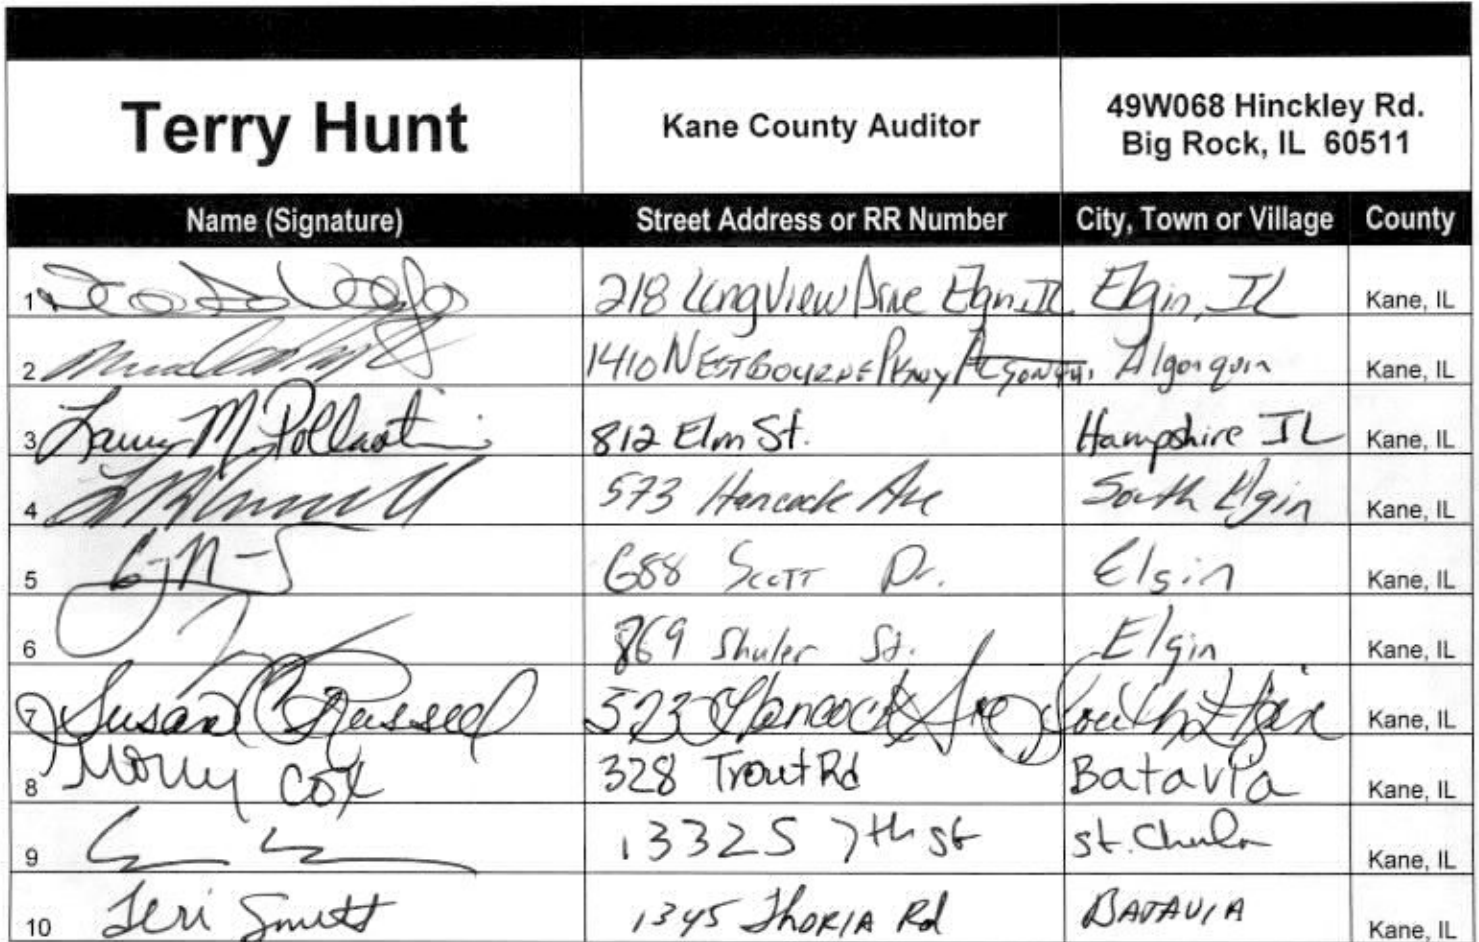 Terry Hunt
Kane County Auditor
49W068 Hinckley Rd.
Big Rock, IL 60511
Name (Signature) Street Address or RR Number City, Town or Village County
1 218 Longview Drive Elgin, IL Elgin, IL Kane, IL
2 1410 Algonquin Kane, IL
3 Larry M. 812 Elm St. Hampshire IL Kane, IL
4 573 Hancock Ave South Elgin Kane, IL
5 688 Scott Dr. Elgin Kane, IL
6 869 Shuler St. Elgin Kane, IL
7 Susan C Russell 573 Hancock Ave South Elgin Kane, IL
8 Molly Cox 328 Trout Rd Batavia Kane, IL
9 1332 S 7th St Kane, IL
10 Teri 1345 Rd BATAVIA Kane, IL